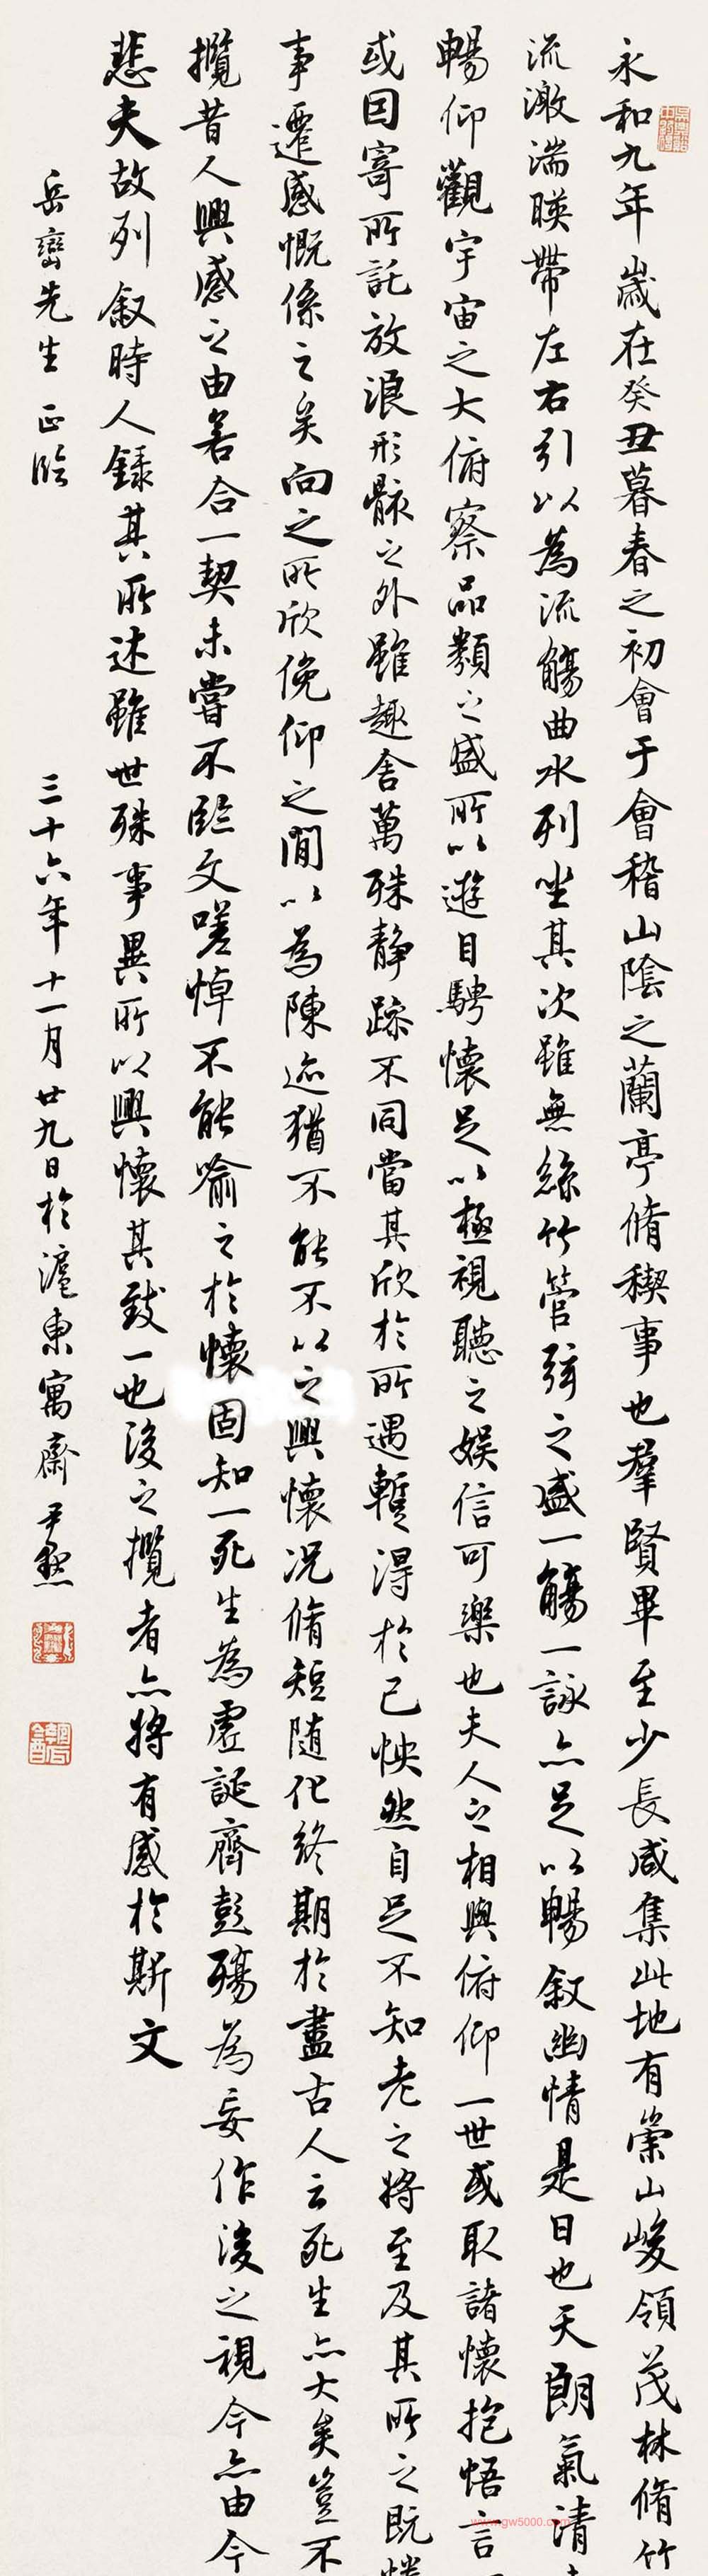 永和九年歲在癸丑暮春之初會于會稽山陰之蘭亭脩稧事也羣賢畢至少長咸集此地有崇山峻領茂林脩竹
流激湍暎帶左右引以為流觴曲水列坐其次雖無絲竹管弦之盛一觴一詠亦足以暢敘幽情是日也天朗氣清
暢仰觀宇宙之大俯察品類之盛所以遊目騁懷足以極視聽之娛信可樂也夫人之相與俯仰一世或取諸懷抱悟言
或因寄所託放浪形骸之外雖趣舍萬殊靜躁不同當其欣於所遇暫得於己怏然自足不知老之將至及其所之既惓
事遷感慨係之矣向之所欣俛仰之閒以為陳迹猶不能不以之興懷況脩短隨化終期於盡古人云死生亦大矣豈不
攬昔人興感之由若合一契未嘗不臨文嗟悼不能喻之於懷固知一死生為虛誕齊彭殤為妄作後之視今亦由今
悲夫故列敘時人錄其所述雖世殊事異所以興懷其致一也後之攬者亦將有感於斯文
岳巒先生正臨
三十六年十一月廿九日於滬東寓齋尹默
www.gw5000.com